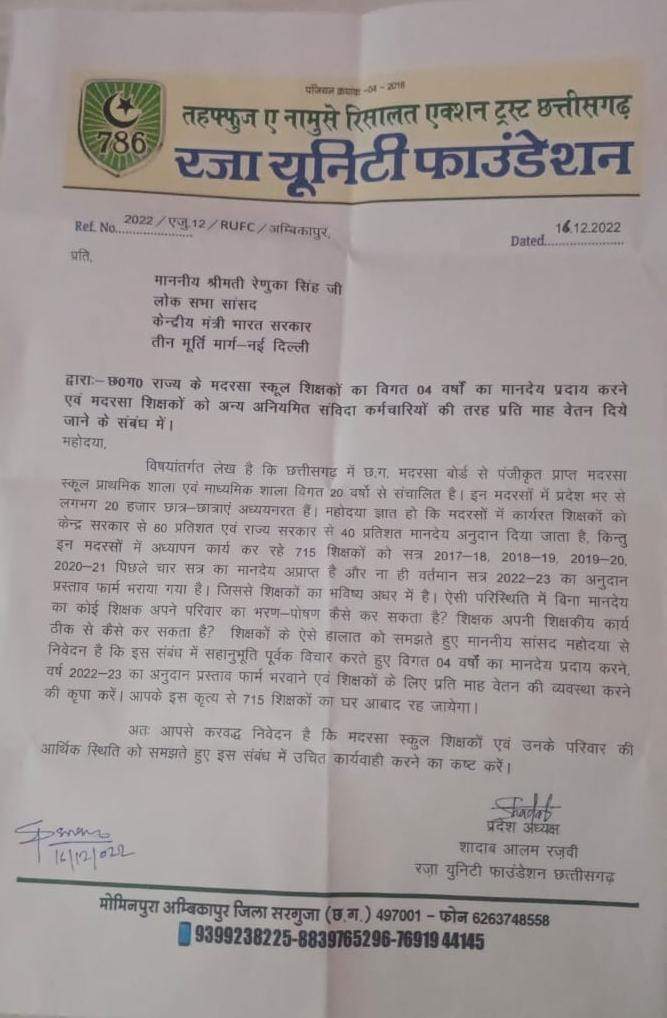 पंजियन क्रमांक -04 - 2018
786
तहफ्फुज ए नामुसे रिसालत एक्शन ट्रस्ट छत्तीसगढ़
रजा यूनिटी फाउंडेशन
Ref. No. 2022 / एजु.12 / RUFC / अम्बिकापुर,
Dated 16.12.2022
प्रति,
माननीय श्रीमती रेणुका सिंह जी
लोक सभा सांसद
केन्द्रीय मंत्री भारत सरकार
तीन मूर्ति मार्ग–नई दिल्ली
द्वाराः– छ0ग0 राज्य के मदरसा स्कूल शिक्षकों का विगत 04 वर्षों का मानदेय प्रदाय करने
एवं मदरसा शिक्षकों को अन्य अनियमित संविदा कर्मचारियों की तरह प्रति माह वेतन दिये
जाने के संबंध में।
महोदया,
विषयांतर्गत लेख है कि छत्तीसगढ़ में छ.ग. मदरसा बोर्ड से पंजीकृत प्राप्त मदरसा
स्कूल प्राथमिक शाला एवं माध्यमिक शाला विगत 20 वर्षो से संचालित है। इन मदरसों में प्रदेश भर से
लगभग 20 हजार छात्र–छात्राएं अध्ययनरत हैं। महोदया ज्ञात हो कि मदरसों में कार्यरत शिक्षकों को
केन्द्र सरकार से 60 प्रतिशत एवं राज्य सरकार से 40 प्रतिशत मानदेय अनुदान दिया जाता है, किन्तु
इन मदरसों में अध्यापन कार्य कर रहे 715 शिक्षकों को सत्र 2017–18, 2018–19, 2019–20,
2020–21 पिछले चार सत्र का मानदेय अप्राप्त है और ना ही वर्तमान सत्र 2022–23 का अनुदान
प्रस्ताव फार्म भराया गया है। जिससे शिक्षकों का भविष्य अधर में है। ऐसी परिस्थिति में बिना मानदेय
का कोई शिक्षक अपने परिवार का भरण–पोषण कैसे कर सकता है? शिक्षक अपनी शिक्षकीय कार्य
ठीक से कैसे कर सकता है? शिक्षकों के ऐसे हालात को समझते हुए माननीय सांसद महोदया से
निवेदन है कि इस संबंध में सहानुभूति पूर्वक विचार करते हुए विगत 04 वर्षों का मानदेय प्रदाय करने,
वर्ष 2022–23 का अनुदान प्रस्ताव फार्म भरवाने एवं शिक्षकों के लिए प्रति माह वेतन की व्यवस्था करने
की कृपा करें। आपके इस कृत्य से 715 शिक्षकों का घर आबाद रह जायेगा।
अतः आपसे करवद्ध निवेदन है कि मदरसा स्कुल शिक्षकों एवं उनके परिवार की
आर्थिक स्थिति को समझते हुए इस संबंध में उचित कार्यवाही करने का कष्ट करें।
Shadab
16/12/2022
प्रदेश अध्यक्ष
शादाब आलम रज़वी
रज़ा युनिटी फाउंडेशन छत्तीसगढ़
मोमिनपुरा अम्बिकापुर जिला सरगुजा (छ.ग.) 497001 – फोन 6263748558
9399238225-8839765296-76919 44145